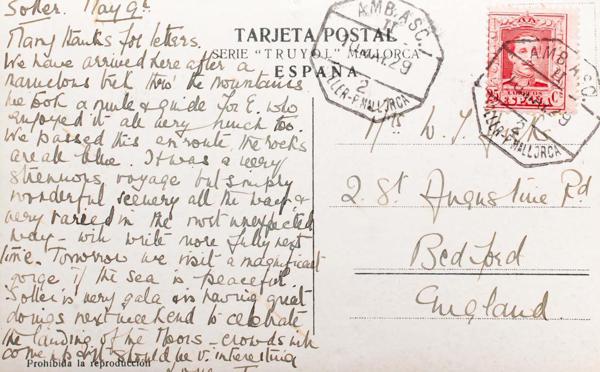 Soller. May 9th
Many thanks for letters.
We have arrived here after a
marvelous trek thro' the mountains
we took a mule & guide for E. who
enjoyed it all very much too.
We passed this en route, the rocks
are all blue. It was a very
strenuous voyage but simply
wonderful scenery all the way &
very varied in the most unexpected
way – will write more fully next
time. Tomorrow we visit a magnificent
gorge if the sea is peaceful
Soller is very gala & is having great
doings next week end to celebrate
the landing of the Moors – crowds will
come should be v. interesting
Prohibida la reproducción
TARJETA POSTAL
SERIE "TRUYOL" MALLORCA
ESPAÑA
AMB.ASC.
29
2
SOLLER-P.MALLORCA
AMB.ASC.
29
2
SOLLER-P.MALLORCA
ESPAÑA
2. St Augustine Rd
Bedford
England